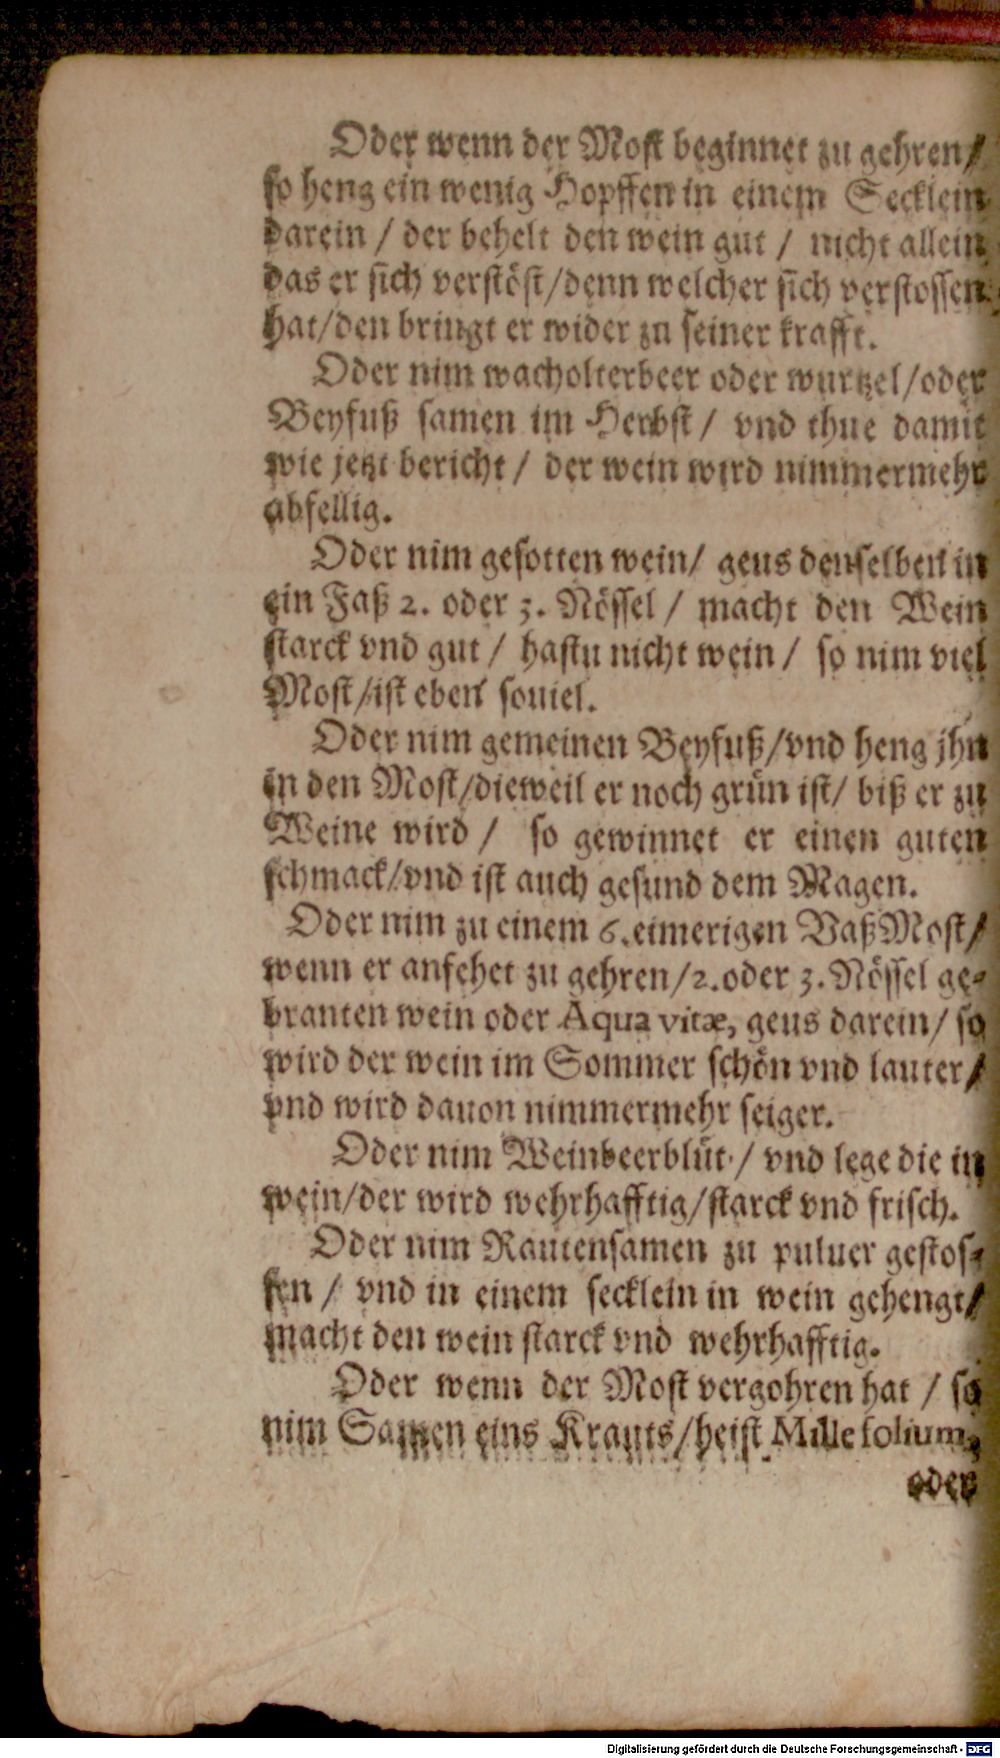 Oder wenn der Moſt beginnet zu gehren/
ſo heng ein wenig Hopffen in einem Secklein
darein / der behelt den wein gut / nicht allein
das er ſich verſtöſt/denn welcher ſich verſtoſſen
hat/den bringt er wider zu ſeiner krafft.
Oder nim wacholterbeer oder wurtzel/oder
Beyfuß ſamen im Herbſt / vnd thue damit
wie jetzt bericht / der wein wird nimmermehr
abfellig.
Oder nim geſotten wein/ geus denſelben in
ein Faß 2. oder 3. Nöſſel / macht den Wein
ſtarck vnd gut / haſtu nicht wein / ſo nim viel
Moſt/iſt eben ſouiel.
Oder nim gemeinen Beyfuß/vnd heng jhn
in den Moſt/dieweil er noch grün iſt/ biß er zu
Weine wird / ſo gewinnet er einen guten
ſchmack/vnd iſt auch geſund dem Magen.
Oder nim zu einem 6.eimerigen Vaß Moſt/
wenn er anfehet zu gehren/2.oder 3.Nöſſel ge-
branten wein oder Aqua vitæ, geus darein/ ſo
wird der wein im Sommer ſchön vnd lauter/
vnd wird dauon nimmermehr ſeiger.
Oder nim Weinbeerblüt / vnd lege die in
wein/der wird wehrhafftig/ſtarck vnd friſch.
Oder nim Rautenſamen zu puluer geſtoſ-
ſen / vnd in einem ſecklein in wein gehengt/
macht den wein ſtarck vnd wehrhafftig.
Oder wenn der Moſt vergohren hat / ſo
nim Samen eins Krauts/heiſt Mille folium,
oder
Digitalisierung gefördert durch die Deutsche Forschungsgemeinschaft - DFG